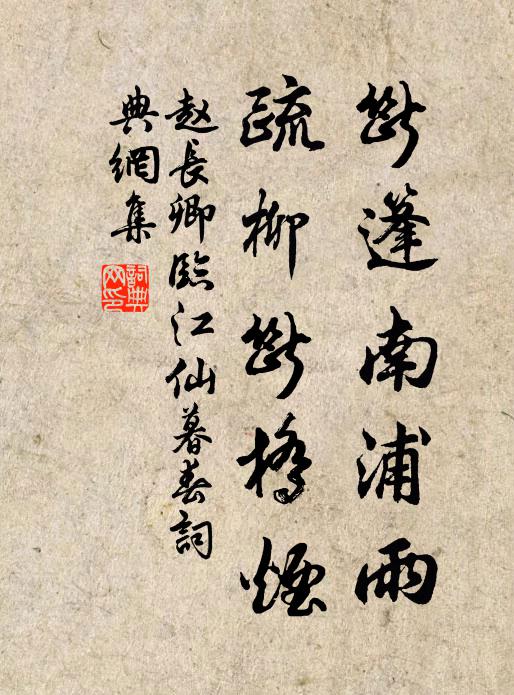 斷蓬南浦雨
疏柳斷橋煙
赵長卿臨江仙暮春詞
典網集
詞典
网印